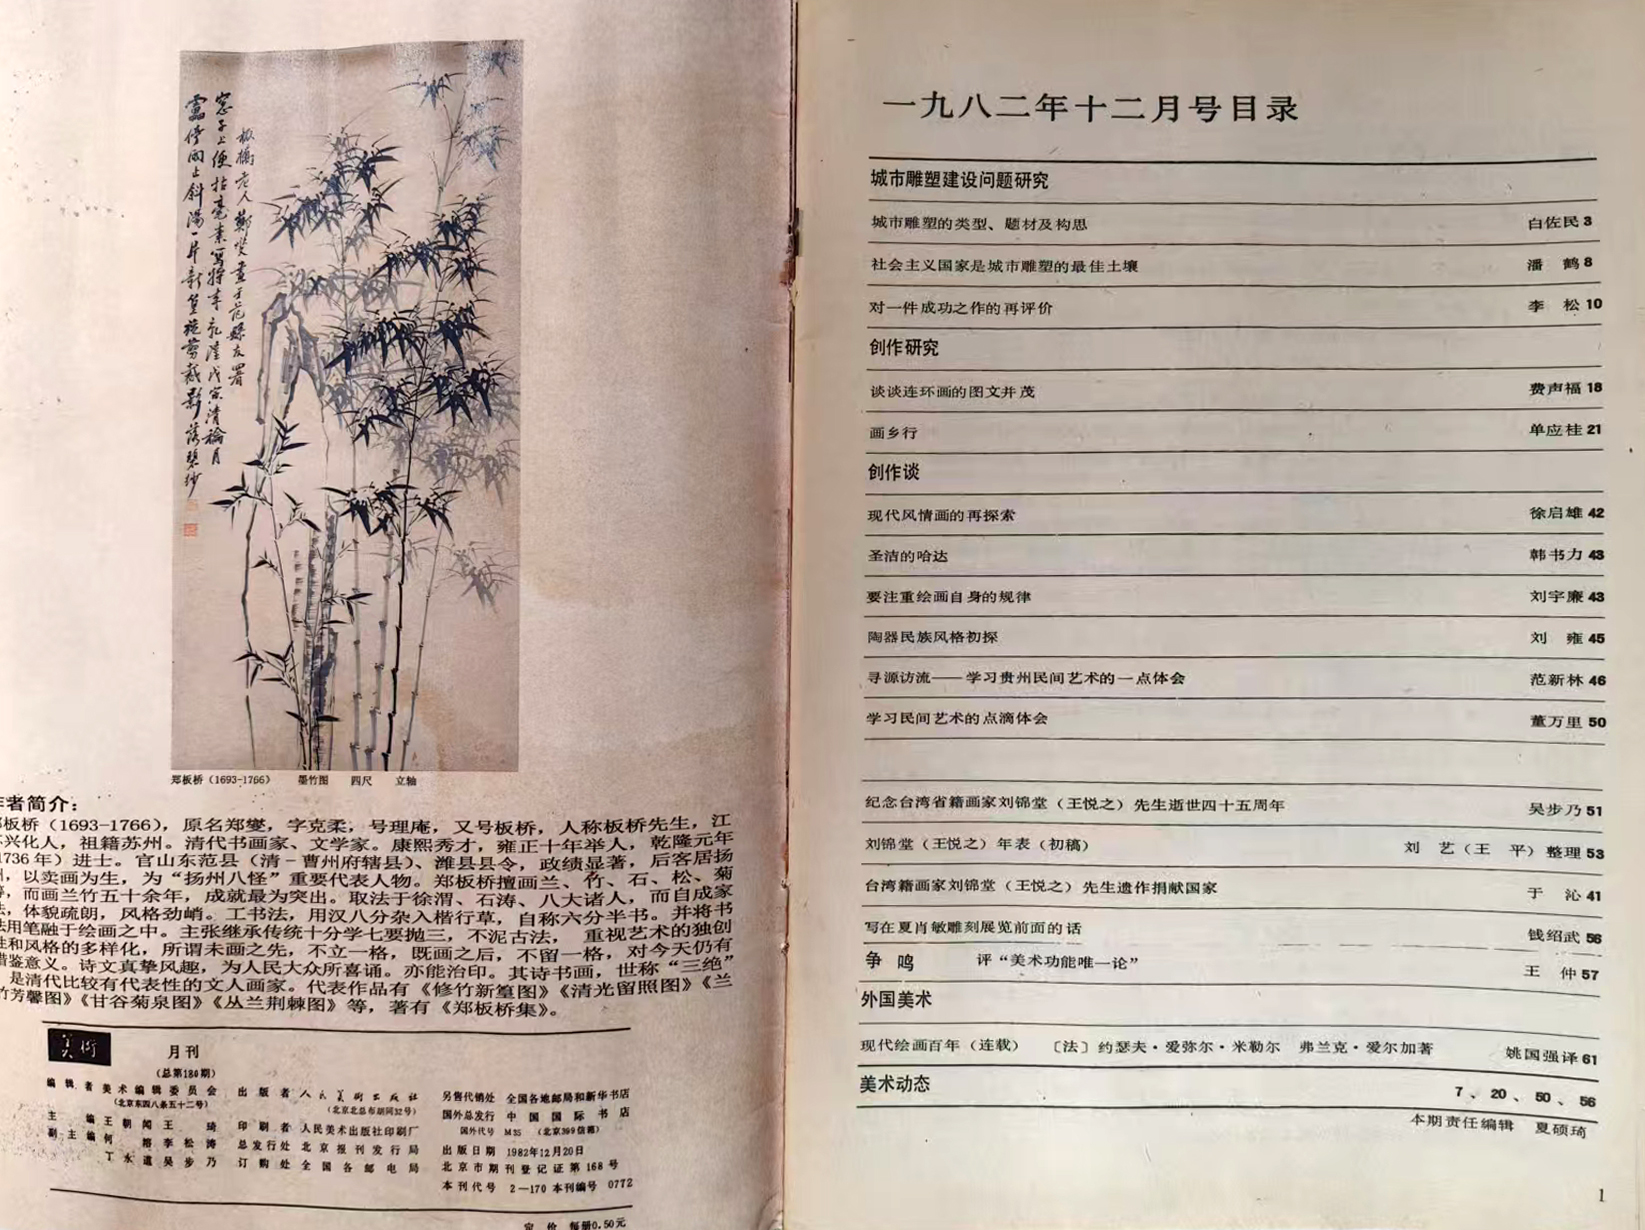 板橋老人鄭燮畫于范縣衣署
窓子上便拈毫素寫將來乾隆戊寅清龢月
雨上斜陽一片新篁旋剪裁影落碧纱
郑板桥（1693-1766） 墨竹图 四尺 立轴
者简介：
板桥（1693-1766），原名郑燮，字克柔，号理庵，又号板桥，人称板桥先生，江
兴化人，祖籍苏州。清代书画家、文学家。康熙秀才，雍正十年举人，乾隆元年
1736年）进士。官山东范县（清-曹州府辖县）、潍县县令，政绩显著，后客居扬
，以卖画为生，为“扬州八怪”重要代表人物。郑板桥擅画兰、竹、石、松、菊
，而画兰竹五十余年，成就最为突出。取法于徐渭、石涛、八大诸人，而自成家
，体貌疏朗，风格劲峭。工书法，用汉八分杂入楷行草，自称六分半书。并将书
用笔融于绘画之中。主张继承传统十分学七要抛三，不泥古法， 重视艺术的独创
和风格的多样化，所谓未画之先，不立一格，既画之后，不留一格，对今天仍有
借鉴意义。诗文真挚风趣，为人民大众所喜诵。亦能治印。其诗书画，世称“三绝”
，是清代比较有代表性的文人画家。代表作品有《修竹新篁图》《清光留照图》《兰
竹芳馨图》《甘谷菊泉图》《丛兰荆棘图》等，著有《郑板桥集》。
美术
月刊
（总第180期）
编辑者 美术编辑委员会
（北京东四八条五十二号）
主编 王朝闻 王琦
副主编 何溶 李松涛
丁永道 吴步乃
出版者 人民美術出版社
（北京北总布胡同32号）
印刷者 人民美术出版社印刷厂
总发行处 北京报刊发行局
订购处 全国各邮电局
另售代销处 全国各地邮局和新华书店
国外总发行 中国国际书店
国外代号 M35 （北京399信箱）
出版日期 1982年12月20日
北京市期刊登记证第168号
本刊代号 2—170 本刊编号 0772
定价 每册0.50元
一九八二年十二月号目录
城市雕塑建设问题研究
城市雕塑的类型、题材及构思 白佐民 3
社会主义国家是城市雕塑的最佳土壤 潘 鹤 8
对一件成功之作的再评价 李 松 10
创作研究
谈谈连环画的图文并茂 费声福 18
画乡行 单应桂 21
创作谈
现代风情画的再探索 徐启雄 42
圣洁的哈达 韩书力 43
要注重绘画自身的规律 刘宇廉 43
陶器民族风格初探 刘 雍 45
寻源访流——学习贵州民间艺术的一点体会 范新林 46
学习民间艺术的点滴体会 董万里 50
纪念台湾省籍画家刘锦堂（王悦之）先生逝世四十五周年 吴步乃 51
刘锦堂（王悦之）年表（初稿） 刘 艺（王 平）整理 53
台湾籍画家刘锦堂（王悦之）先生遗作捐献国家 于 沁 41
写在夏肖敏雕刻展览前面的话 钱绍武 56
争鸣 评“美术功能唯一论” 王 仲 57
外国美术
现代绘画百年（连载） 〔法〕约瑟夫·爱弥尔·米勒尔 弗兰克·爱尔加著 姚国强译 61
美术动态 7、20、50、56
本期责任编辑 夏硕琦
1